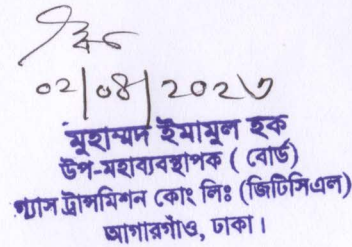 ০২|০৪|২০২৩
মুহাম্মদ ইমামুল হক
উপ-মহাব্যবস্থাপক ( বোর্ড)
গ্যাস ট্রান্সমিশন কোং লিঃ (জিটিসিএল)
আগারগাঁও, ঢাকা।